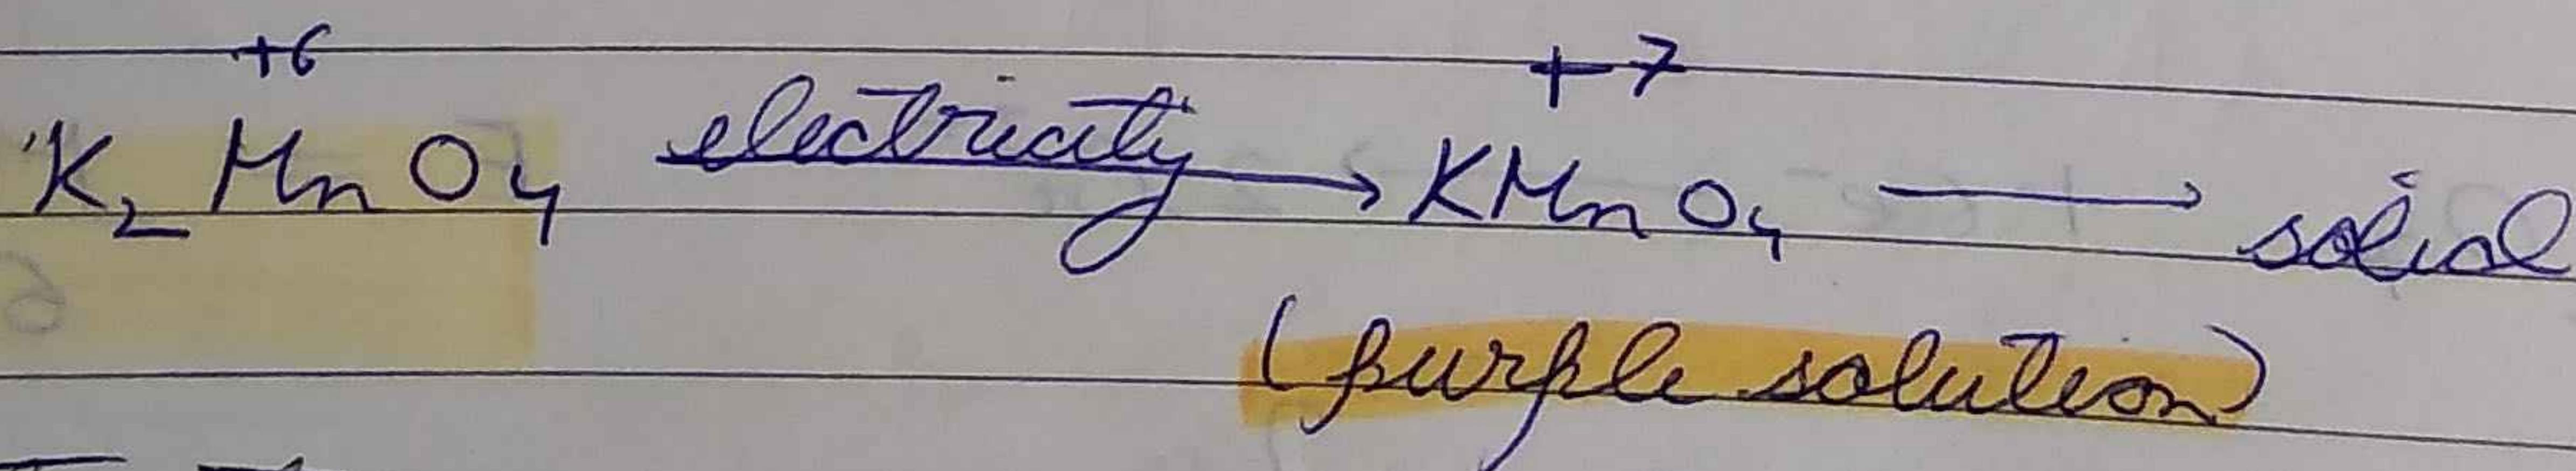 +6 +7
K₂ MnO₄ electricity → KMnO₄ → solid
(purple solution)